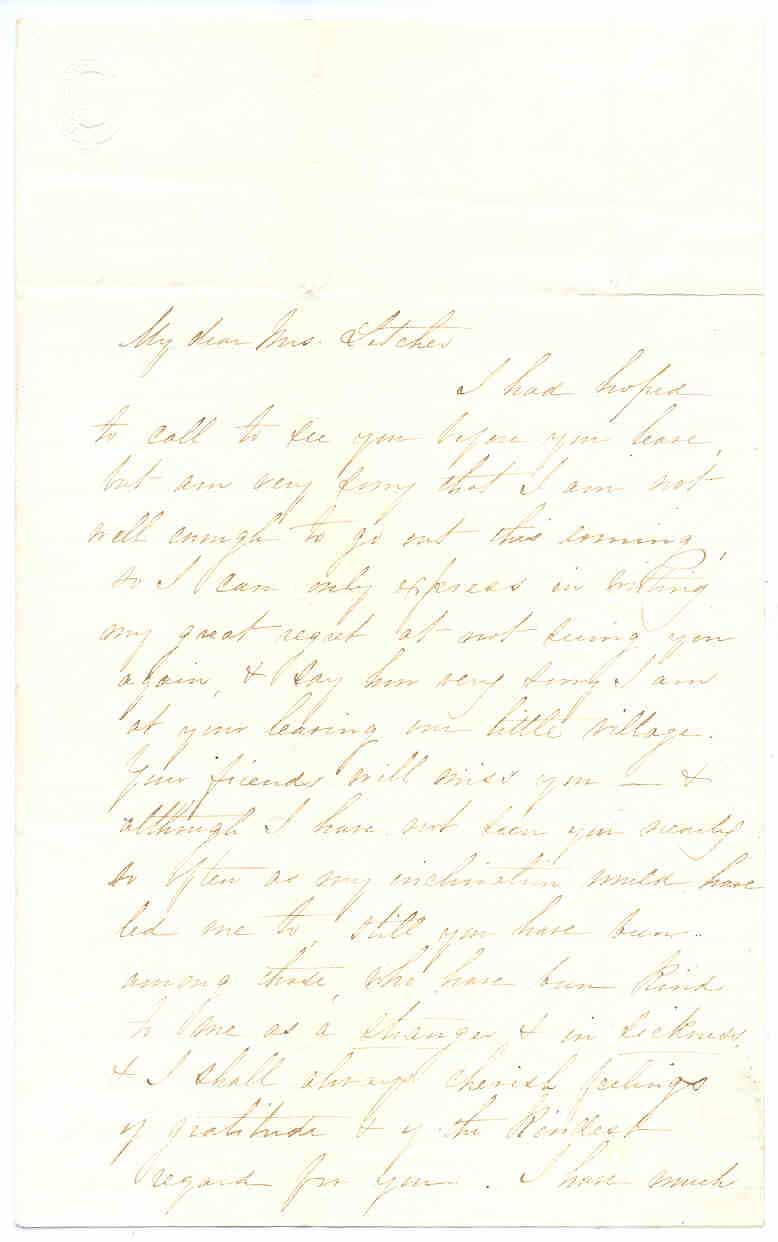 My dear Mrs. Letcher
I had hoped
to call to see you before you leave,
but am very sorry that I am not
well enough to go out this evening,
so I can only express in writing
my great regret at not seeing you
again, & say how very sorry I am
at your leaving our little village.
Your friends will miss you — &
although I have not seen you nearly
so often as my inclination would have
led me to, still you have been
among those, who have been kind
to me as a stranger & in sickness,
& I shall always cherish feelings
of gratitude & of the kindest
regard for you. I have much